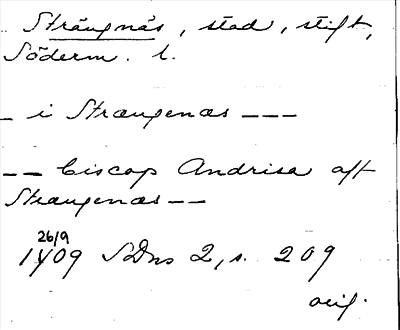 Strängnäs, stad, stift,
Söderm. l.
– i Strængenæs – – –
– – biscop Andrisa aff
Strængenæs – –
26/9
1409 SDns 2, s. 209
orig.